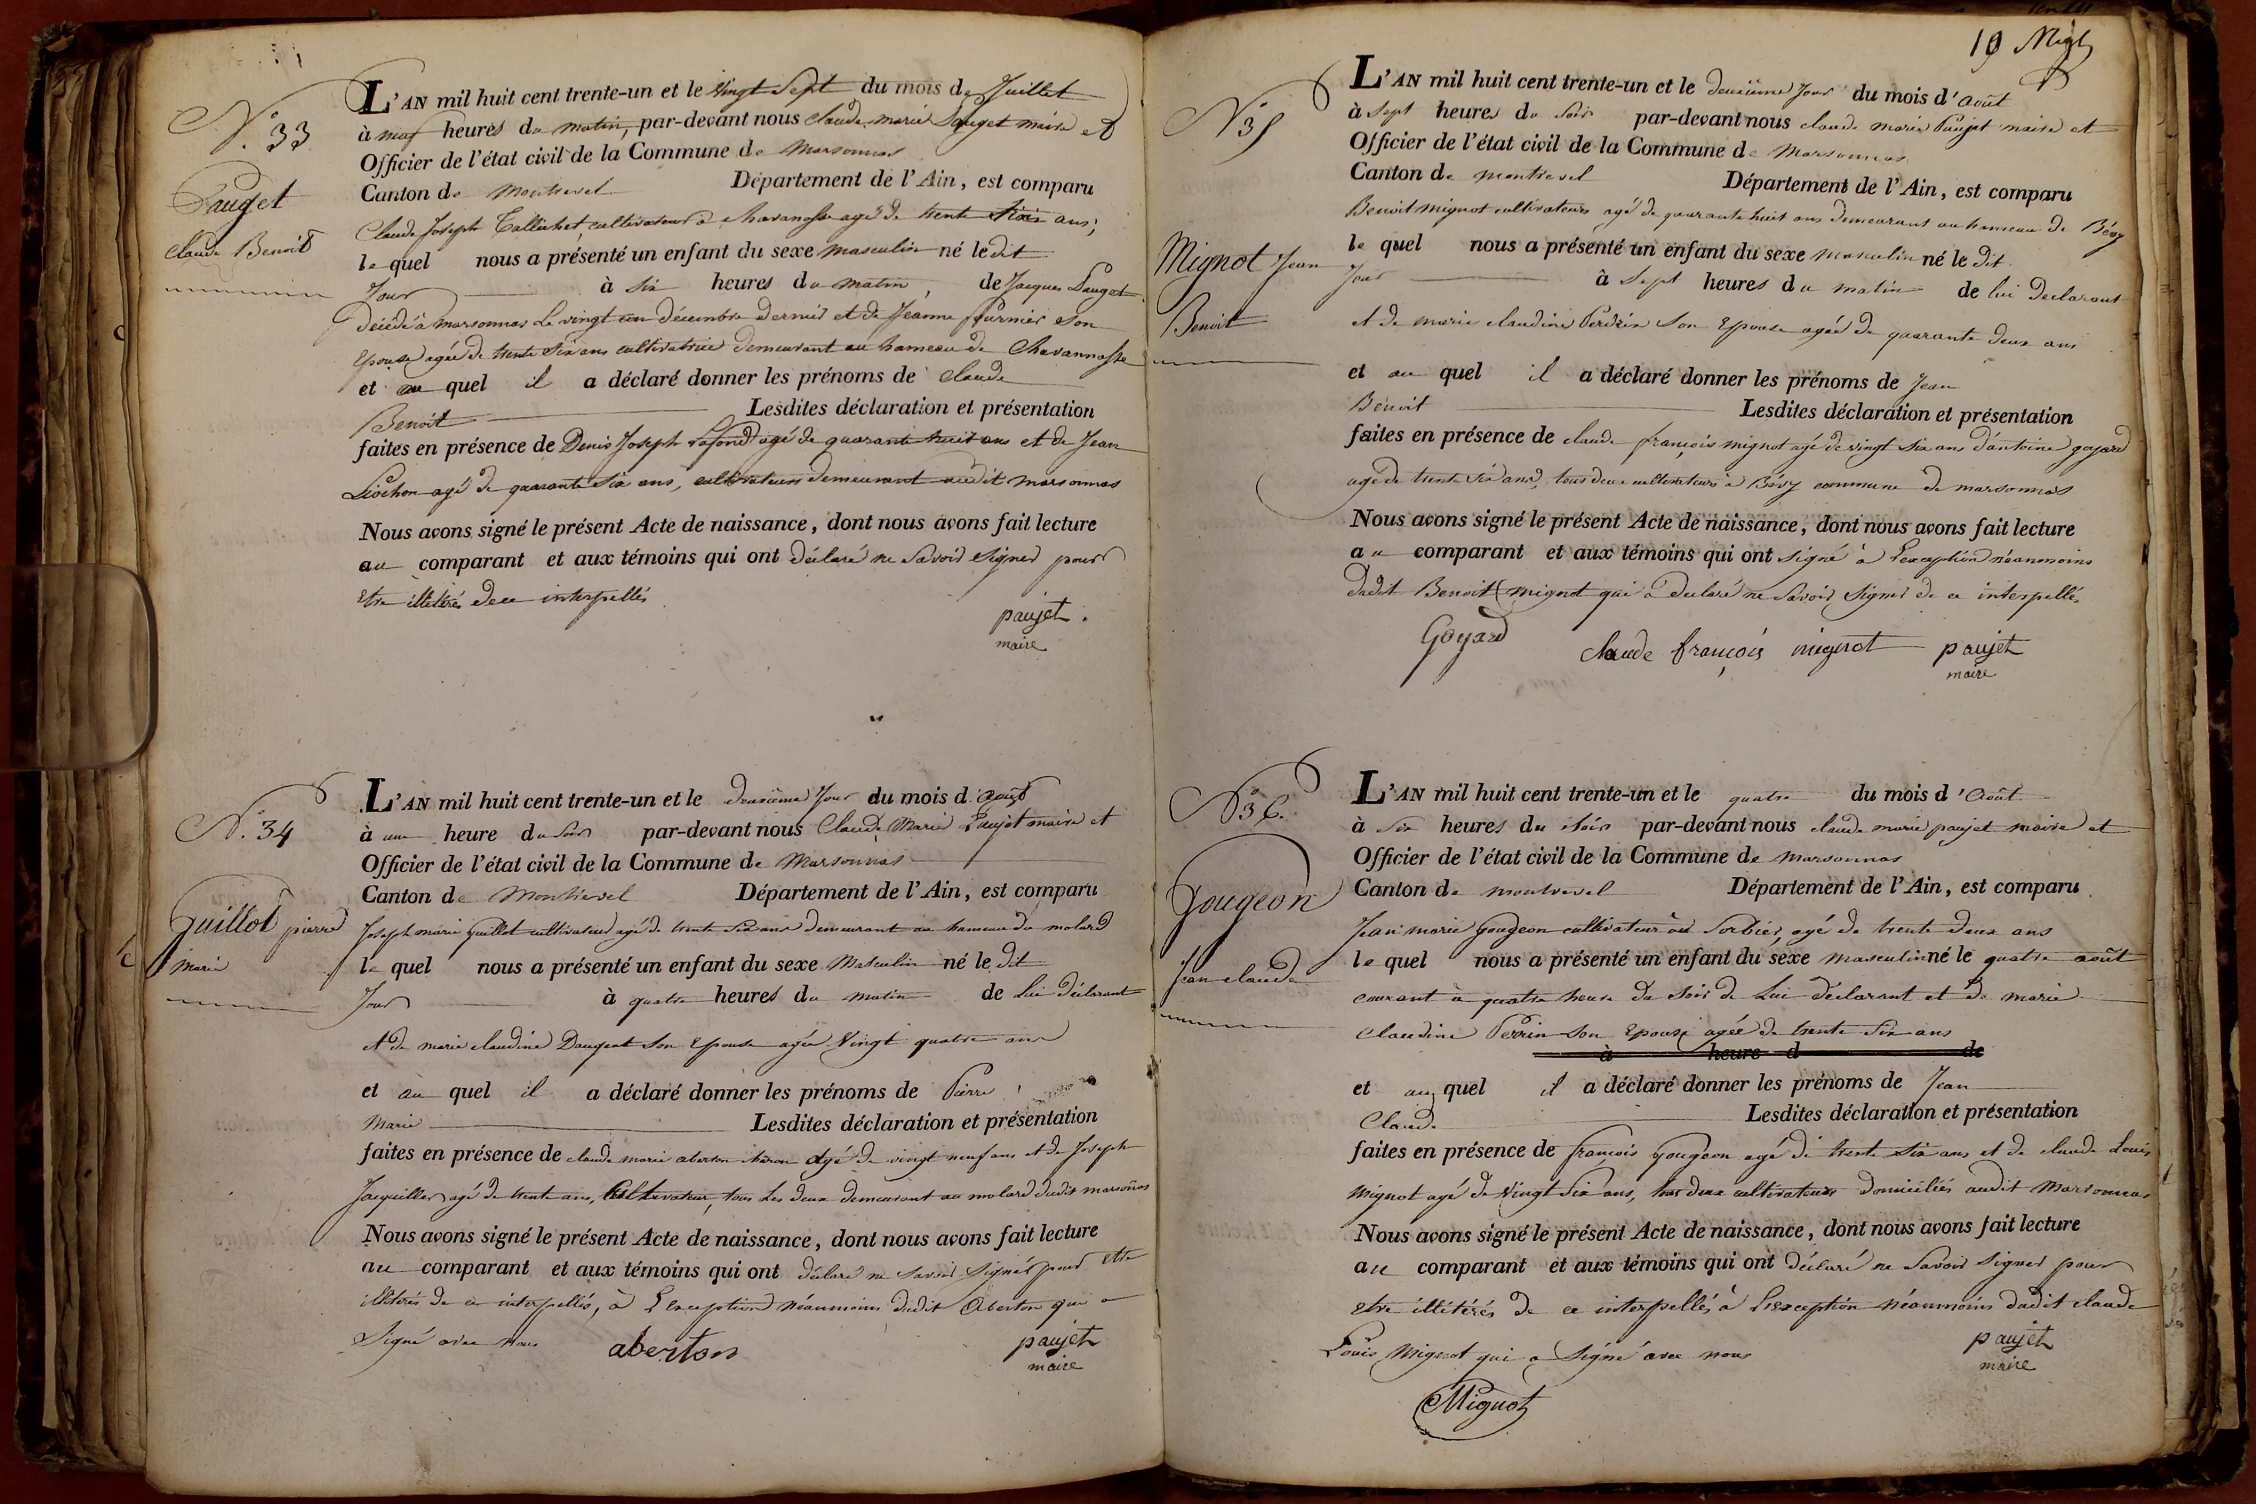 N.° 33
Pauget
claude Benoit
L'AN mil huit cent trente-un et le vingt Sept du mois de Juillet
à neuf heures du matin, par-devant nous claude marie Pauget maire et
Officier de l'état civil de la Commune de Marsonnas
Canton de Montrevel Département de l'Ain, est comparu
Claude Joseph cultivateur à chavanosse agé de trente trois ans;
le quel nous a présenté un enfant du sexe masculin né le dit
Jour à six heures du matin, de Jacques Pauget
décédé à marsonnas Le vingt un décembre dernier et de Jeanne fournier son
Epouse agée de trente six ans cultivatrice demeurant au hameau de Chavannosse
et au quel il a déclaré donner les prénoms de claude
Benoit Lesdites déclaration et présentation
faites en présence de Denis Joseph Lafond agé de quarante huit ans et de Jean
Liochon agé de quarante six ans, cultivateurs demeurant audit marsonnas
Nous avons signé le présent Acte de naissance, dont nous avons fait lecture
au comparant et aux témoins qui ont déclaré ne Savoir Signer pour
etre illitérés de ce interpellés
paujet.
maire
N.° 34
Guillot pierre
marie
L'AN mil huit cent trente-un et le deuxième Jour du mois d'août
à une heure du Soir par-devant nous Claude Marie Paujet maire et
Officier de l'état civil de la Commune de Marsonnas
Canton de Montrevel Département de l'Ain, est comparu
Joseph marie Guillot cultivateur agé de trente six ans demeurant au hameau du molard
le quel nous a présenté un enfant du sexe Masculin né le dit
Jour à quatre heures du matin de Lui déclarant
et de marie claudine Daugent son Epouse agée vingt quatre ans
et au quel il a déclaré donner les prénoms de Pierre
Marie Lesdites déclaration et présentation
faites en présence de claude marie aberton agé de vingt neuf ans et de Joseph
Jacquiller agé de trente ans, Cultivateur, tous les deux demeurant au molard dudit marsonnas
Nous avons signé le présent Acte de naissance, dont nous avons fait lecture
au comparant et aux témoins qui ont déclaré ne savoir signer pour etre
illitérés de ce interpellés, à L'exception néanmoins dudit Aberton qui a
Signé avec nous
aberton
paujet
maire
19
N° 35
Mignot Jean
Benoit
L'AN mil huit cent trente-un et le deuxième Jour du mois d'août
à Sept heures du Soir par-devant nous claude marie Paujet maire et
Officier de l'état civil de la Commune de Marsonnas
Canton de montrevel Département de l'Ain, est comparu
Benoit mignot cultivateur agé de quarante huit ans demeurant au hameau de Bévy
le quel nous a présenté un enfant du sexe masculin né le dit
Jour à Sept heures du matin de lui Declarant
et de marie claudine Perdrix son Epouse agée de quarante deux ans
et au quel il a déclaré donner les prénoms de Jean
Benoit Lesdites déclaration et présentation
faites en présence de claude françois mignot agé de vingt six ans d'antoine goyard
agé de trente six ans, tous deux cultivateurs à Bévy commune de marsonnas
Nous avons signé le présent Acte de naissance, dont nous avons fait lecture
au comparant et aux témoins qui ont signé à L'exception néanmoins
dudit Benoit mignot qui a declaré ne Savoir Signer de ce interpellé.
Goyard
claude françois mignot
paujet
maire
N° 36.
Gougeon
Jean claude
L'AN mil huit cent trente-un et le quatre du mois d'Août
à Six heures du Soir par-devant nous claude marie paujet maire et
Officier de l'état civil de la Commune de marsonnas
Canton de montrevel Département de l'Ain, est comparu
Jean marie Gougeon cultivateur au Sorbier, agé de trente deux ans
le quel nous a présenté un enfant du sexe masculin né le quatre août
courant à quatre heure du soir de Lui déclarant et de marie
Claudine Perrin Son Epouse agée de trente Six ans
à heure d de
et au quel il a déclaré donner les prénoms de Jean
Claude Lesdites déclaration et présentation
faites en présence de françois Gougeon agé de trente Six ans et de claude Louis
Mignot agé de Vingt Six ans, tous deux cultivateurs domiciliés audit Marsonnas
Nous avons signé le présent Acte de naissance, dont nous avons fait lecture
au comparant et aux témoins qui ont déclaré ne Savoir signer pour
etre illitérés de ce interpellés à L'exception néanmoins dudit claude
Louis Mignot qui a Signé avec nous
paujet
maire
Mignot